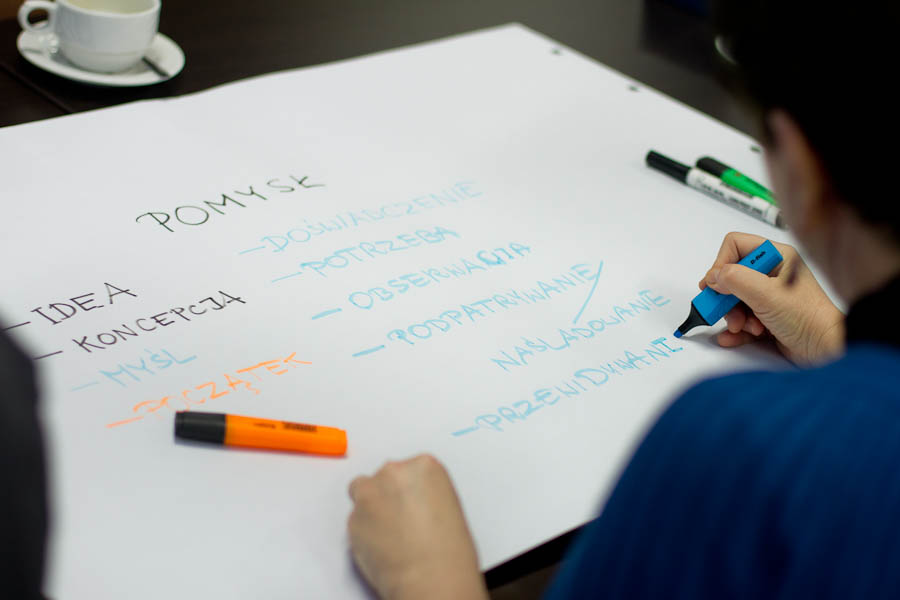 POMYSŁ
– IDEA
– KONCEPCJA
– MYŚL
– POCZĄTEK
– DOŚWIADCZENIE
– POTRZEBA
– OBSERWACJA
– PODPATRYWANIE /
NAŚLADOWANE
– PRZEWIDYWANI